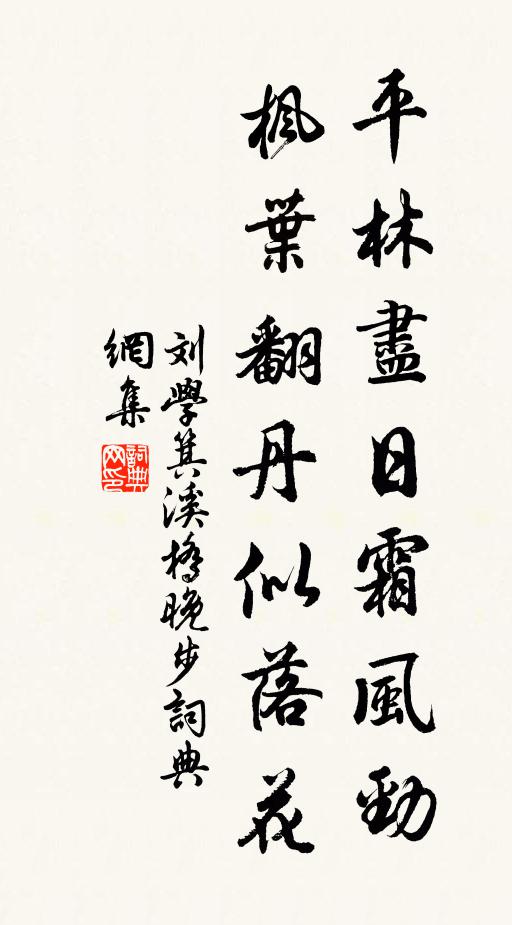 平林盡日霜風勁
楓葉翻丹似落花
刘學箕溪橋晚步詞典
網集
詞典
网印